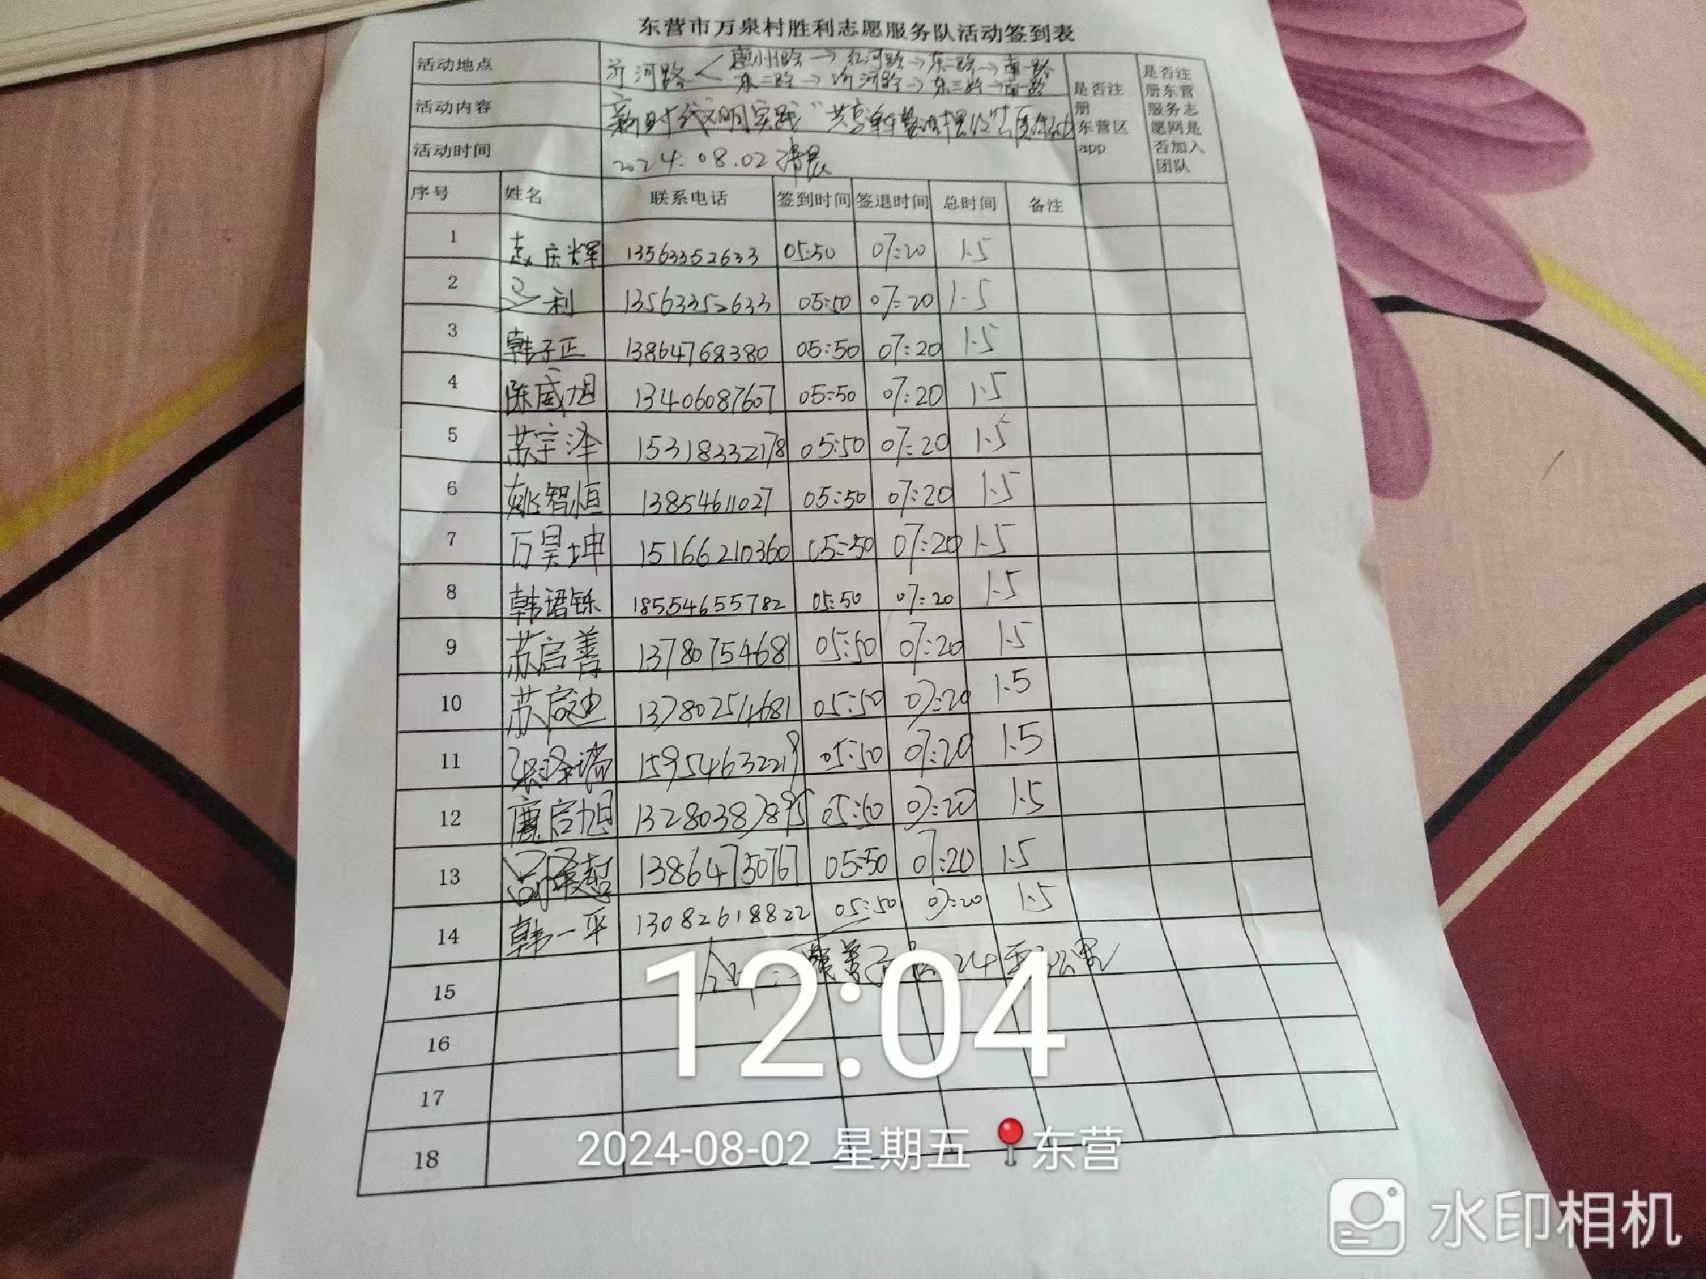 东营市万泉村胜利志愿服务队活动签到表
活动地点 沂河路 惠州路→红河路→东二路→南一路
东二路→沂河路→东三路→南一路
活动内容 新时代文明实践"共享单车整治摆放"
活动时间 2024.08.02 清晨
是否注册东营区app
是否注册东营服务志愿网是否加入团队
序号 姓名 联系电话 签到时间 签退时间 总时间 备注
1 赵庆辉 13563352633 05:50 07:20 1.5
2 利 13563352633 05:50 07:20 1.5
3 韩子正 13864768380 05:50 07:20 1.5
4 陈威旭 13406087607 05:50 07:20 1.5
5 苏宇泽 15318332178 05:50 07:20 1.5
6 姚智恒 13854611027 05:50 07:20 1.5
7 万昊坤 15166210360 05:50 07:20 1.5
8 韩语铄 18554655782 05:50 07:20 1.5
9 苏启善 13780754681 05:50 07:20 1.5
10 苏启迪 13780754681 05:50 07:20 1.5
11 15954632219 05:50 07:20 1.5
12 鹿启旭 13280387895 05:50 07:20 1.5
13 13864730767 05:50 07:20 1.5
14 韩一平 13082618822 05:50 07:20 1.5
15
16
17
18
12:04
2024-08-02 星期五 东营
水印相机